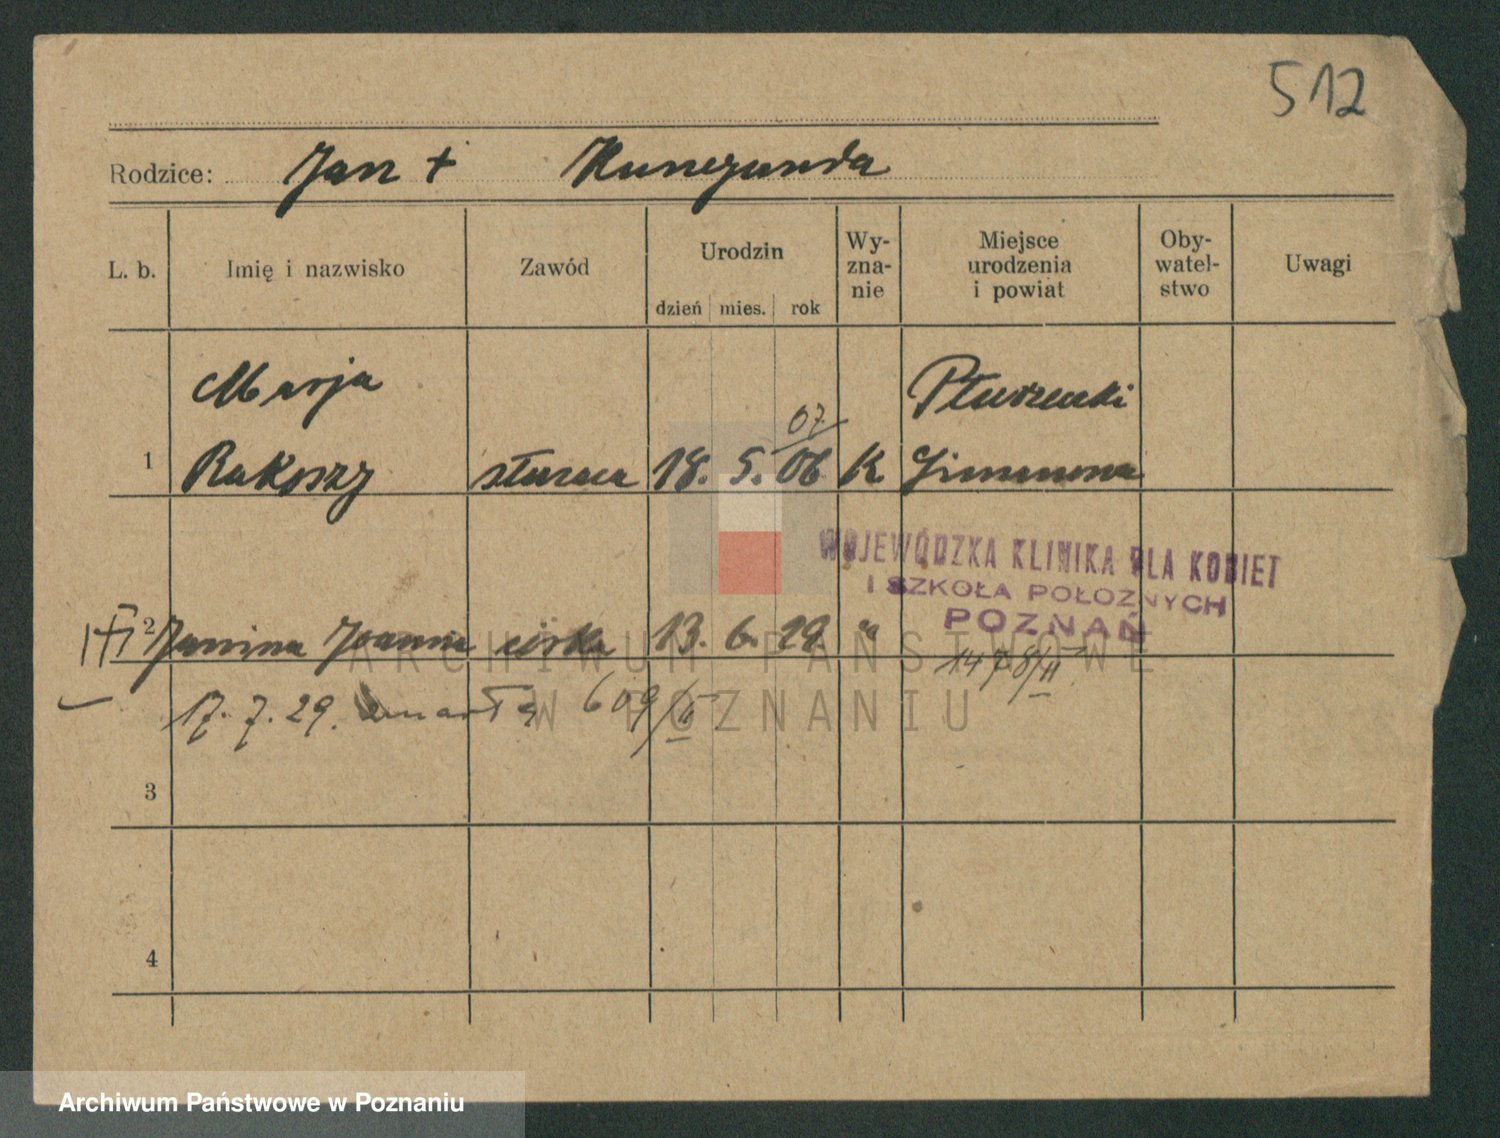 512
Rodzice: Jan + Kunegunda
L. b. Imię i nazwisko Zawód Urodzin dzień mies. rok Wy-zna-nie Miejsce urodzenia i powiat Oby-watel-stwo Uwagi
Marja
07
1 Rakoszy 18. 5. 06 K.
WOJEWÓDZKA KLINIKA DLA KOBIET
I SZKOŁA POŁOŻNYCH
POZNAŃ
2 Janina Joanna córka 13. 6. 29. "
147 8/II
17. 7. 29. zmarła 609/II
3
4
ARCHIWUM PAŃSTWOWE
W POZNANIU
Archiwum Państwowe w Poznaniu